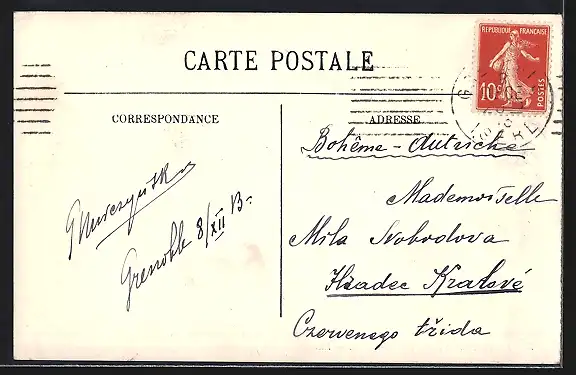 CARTE POSTALE
RÉPUBLIQUE FRANÇAISE
10c
POSTES
CORRESPONDANCE
ADRESSE
Grenoble 8/XII 13-
Bohême - Autriche
Mademoiselle
Mila Svobodova
Hradec Kralové
Czervenego třida